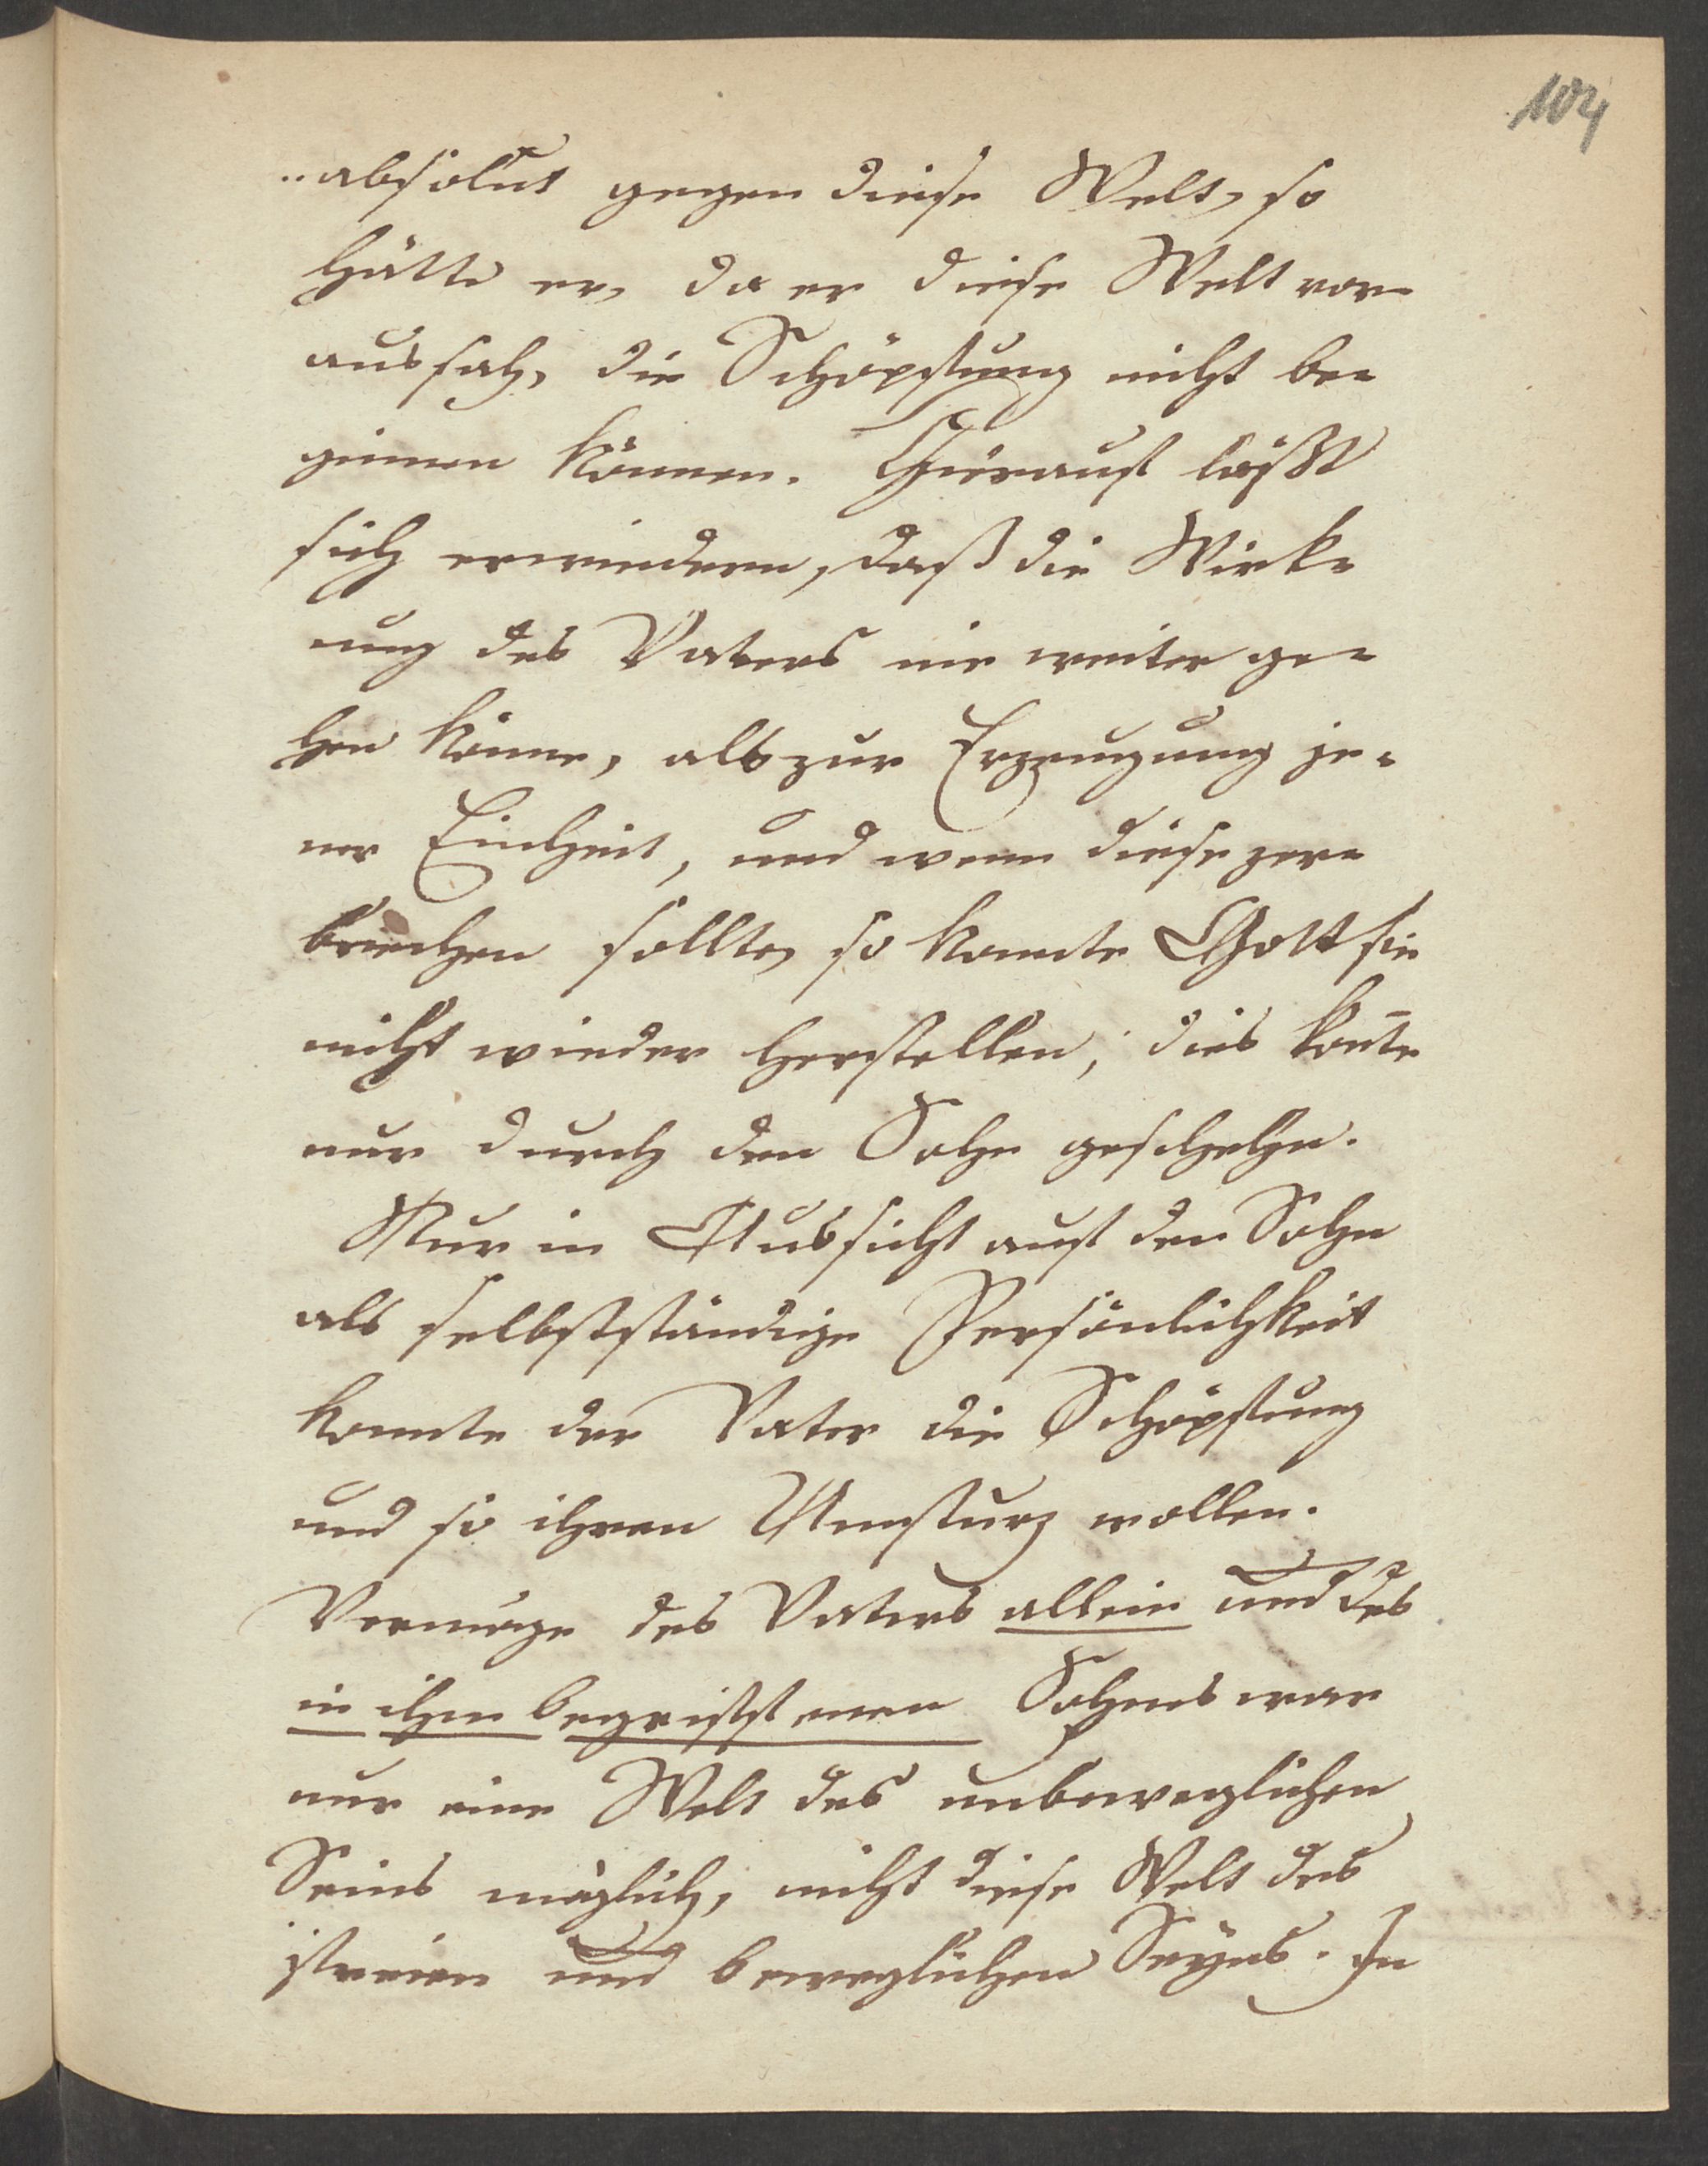 104
„absolut gegen diese Welt, so
hätte er, da er diese Welt vor-
aussah, die Schöpfung nicht be-
ginnen können. Hierauf läßt
sich erwiedern, daß die Wirk-
ung des Vaters nie weiter ge-
hen könne, als zur Erzeugung je-
ner Einheit, und wenn diese zer-
brechen sollte, so konnte Gott sie
nicht wieder herstellen; dies kon̄te
nur durch den Sohn geschehen.
Nur in Aussicht auf den Sohn
als selbstständige Persönlichkeit
konnte der Vater die Schöpfung
und so ihren Umsturz wollen.
Vermöge des Vaters allein und des
in ihm begriffenen Sohnes war
nur eine Welt des unbeweglichen
Seins möglich, nicht diese Welt des
freien und beweglichen Seyns. In